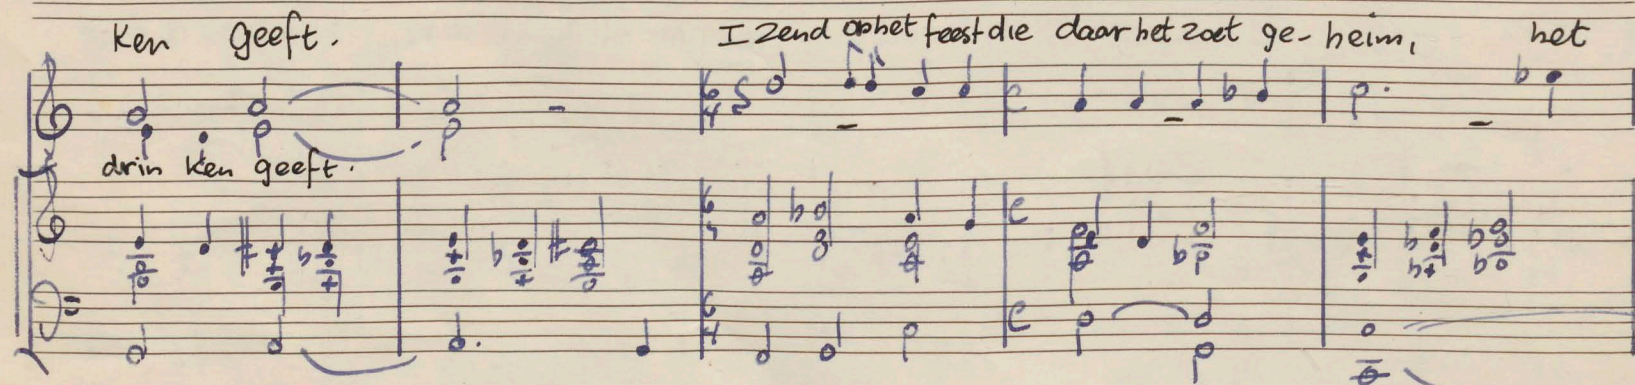 Ken geeft. I Zend op het feest die daar het zoet ge- heim, het
drin Ken geeft.